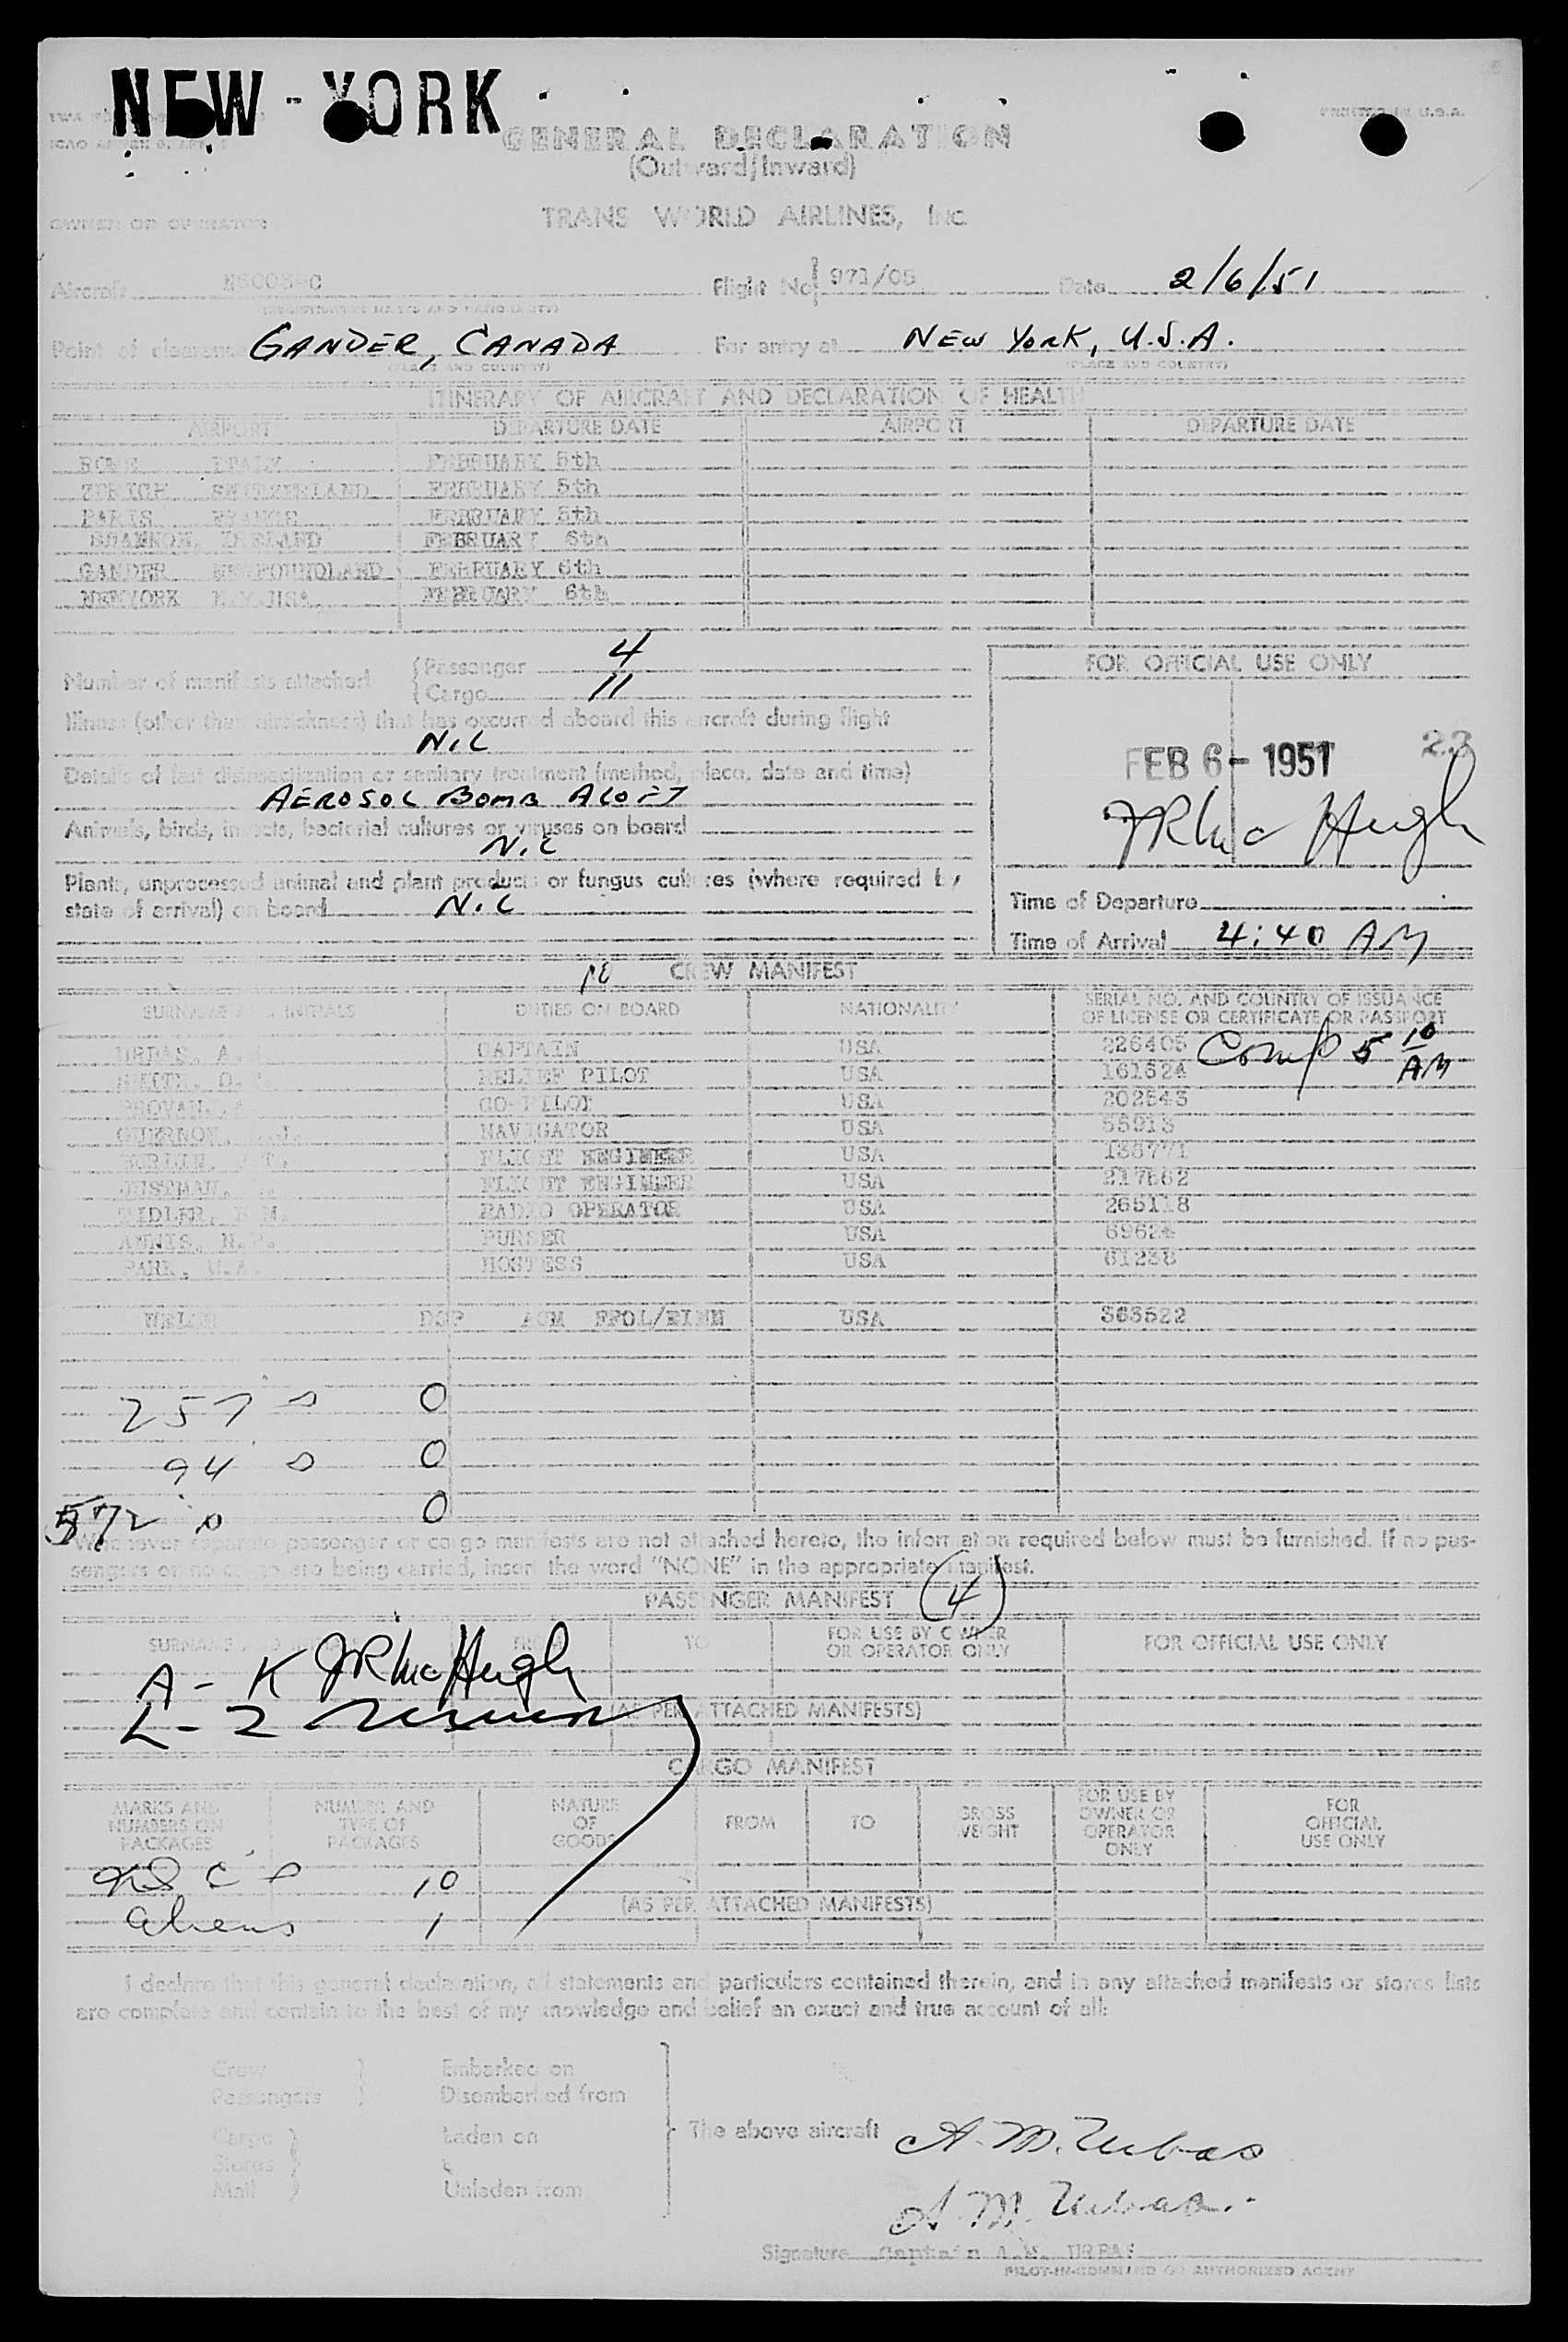 NEW-YORK
PRINTED IN U.S.A.
GENERAL DECLARATION
(Outward/Inward)
OWNER OR OPERATOR TRANS WORLD AIRLINES, Inc.
Aircraft Flight No. 971/05 Date 2/6/51
Point of clearance GANDER, CANADA For entry at NEW YORK, U.S.A.
(PLACE AND COUNTRY) (PLACE AND COUNTRY)
ITINERARY OF AIRCRAFT AND DECLARATION OF HEALTH
AIRPORT DEPARTURE DATE AIRPORT DEPARTURE DATE
ROME ITALY FEBRUARY 5th
ZURICH SWITZERLAND FEBRUARY 5th
PARIS FRANCE FEBRUARY 5th
SHANNON, IRELAND FEBRUARY 6th
GANDER NEWFOUNDLAND FEBRUARY 6th
NEWYORK N.Y.USA. FEBRUARY 6th
Number of manifests attached
Passenger 4
Cargo 11
Illness (other than airsickness) that has occurred aboard this aircraft during flight
NIL
Details of last disinsectization or sanitary treatment (method, place, date and time)
AEROSOL BOMB ALOFT
Animals, birds, insects, bacterial cultures or viruses on board
NIL
Plants, unprocessed animal and plant products or fungus cultures (where required by
state of arrival) on board NIL
FOR OFFICIAL USE ONLY
FEB 6 - 1951 23
JR McHugh
Time of Departure
Time of Arrival 4:40 AM
10 CREW MANIFEST
SURNAME AND INITIALS DUTIES ON BOARD NATIONALITY SERIAL NO. AND COUNTRY OF ISSUANCE
OF LICENSE OR CERTIFICATE OR PASSPORT
URBAS, A. CAPTAIN USA 226405 Comp 5 10 AM
RELIEF PILOT USA 161524
CO-PILOT USA 202543
NAVIGATOR USA 55913
FLIGHT ENGINEER USA 136771
JUSTMAN, FLIGHT ENGINEER USA 217562
RADIO OPERATOR USA 265118
ANNIS, N.P. PURSER USA 69624
PARK, HOSTESS USA 61238
WELCH ACM USA 363522
257 0 0
94 0 0
572 0 0
Whenever separate passenger or cargo manifests are not attached hereto, the information required below must be furnished. If no pas-
sengers or no cargo are being carried, insert the word "NONE" in the appropriate manifest.
PASSENGER MANIFEST (4)
SURNAME AND INITIALS FROM TO FOR USE BY OWNER OR OPERATOR ONLY FOR OFFICIAL USE ONLY
A - K JR McHugh
L - Z
(AS PER ATTACHED MANIFESTS)
CARGO MANIFEST
MARKS AND NUMBERS ON PACKAGES NUMBER AND TYPE OF PACKAGES NATURE OF GOODS FROM TO GROSS WEIGHT FOR USE BY OWNER OR OPERATOR ONLY FOR OFFICIAL USE ONLY
10
Aliens 1
(AS PER ATTACHED MANIFESTS)
I declare that this general declaration, all statements and particulars contained therein, and in any attached manifests or stores lists
are complete and contain to the best of my knowledge and belief an exact and true account of all:
Crew Embarked on
Passengers Disembarked from
Cargo Laden on
Stores
Mail Unladen from
The above aircraft A. M. Urbas
A. M. Urbas
Signature Captain A.M. URBAS
PILOT-IN-COMMAND OR AUTHORIZED AGENT